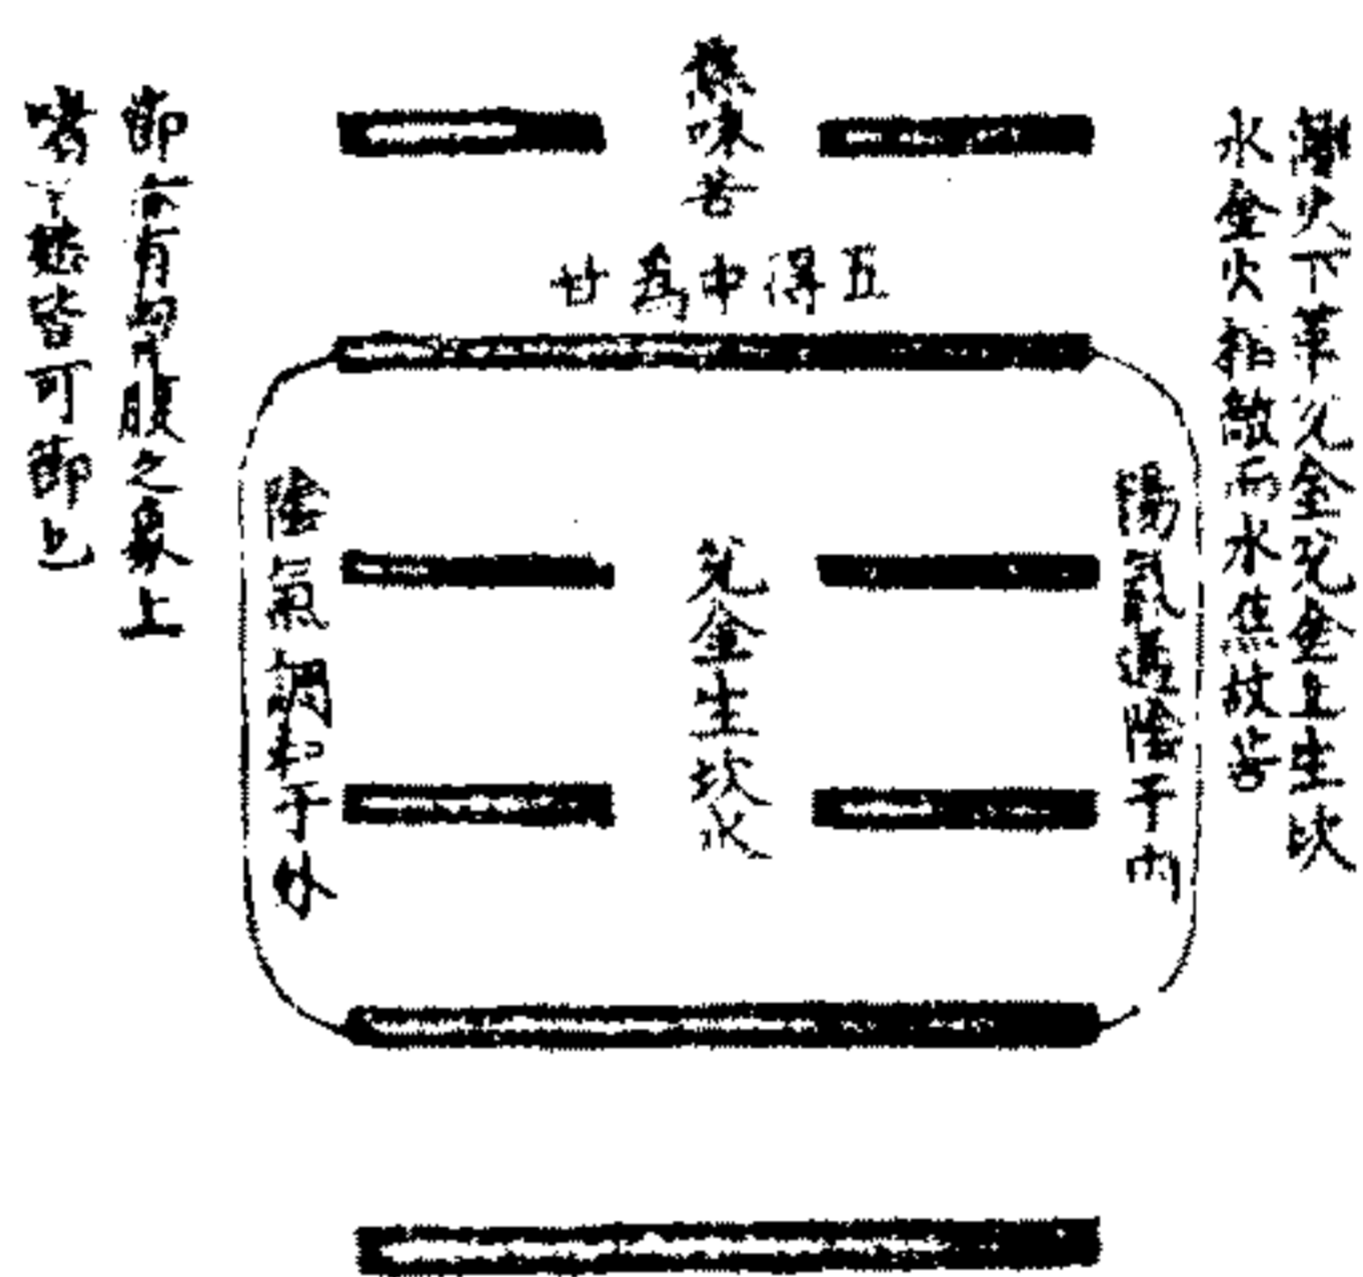 離火下革兌金兌金上生坎
水金火相敵而水焦故苦
焦味苦
五得中爲甘
陽氣遇陰于內
兌金生坎水
陰氣調和于外
節六有剛腹之象上
嗜下
皆可節也